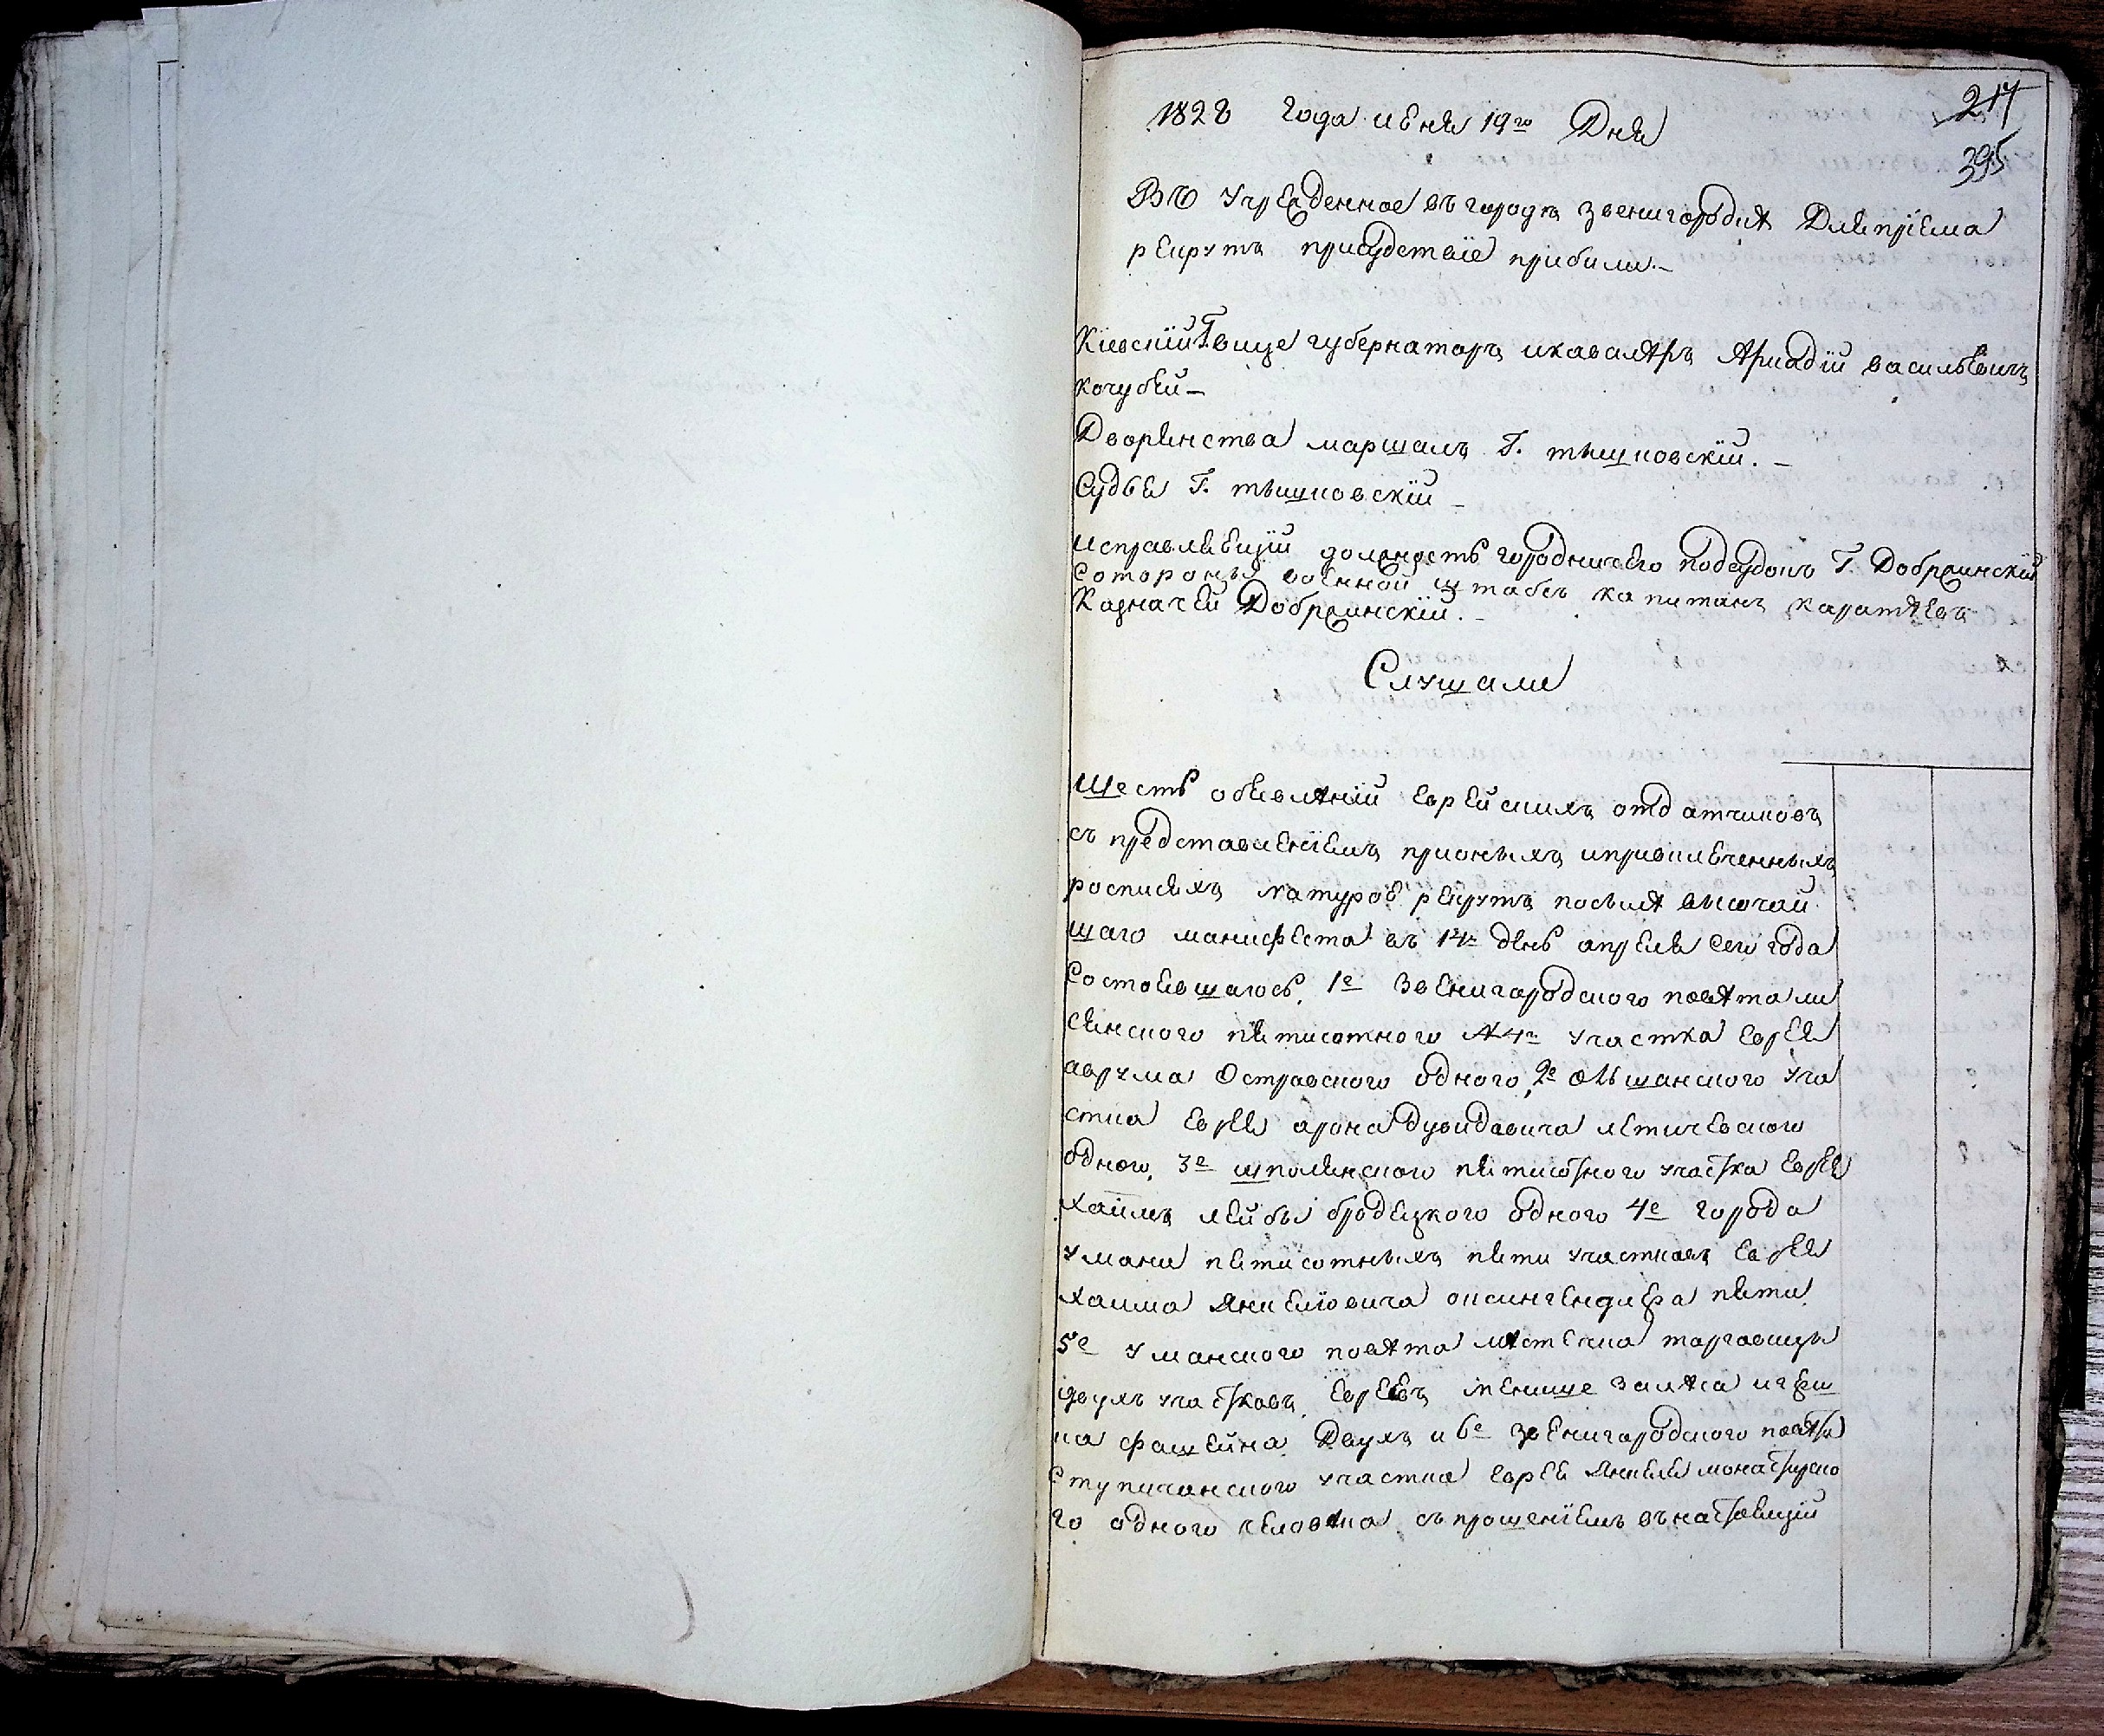 217
395
1828 Года июня 19го Дня
Въ учрежденное въ городѣ звенигородкѣ Для прïема
рекрутъ присудствïе прибыли.-
Кïевскïй Г. вице губернаторъ и кавалѣръ Аркадïй васильевичъ
кочубей-
Дворянства маршалъ Г. тышковскïй.-
Судья Г. тышковскïй-
исправляющïй должность городничего Г. Добржинскïй
со стороны военной штабсъ капитанъ каратѣевъ
Казначей Добржинскïй.-
Слушали
Шесть объявлѣнïй еврейскихъ отдатчиковъ
съ представленïемъ
росписяхъ натурою рекрутъ посилѣ высочай
шаго манифеста въ 14й день апреля сего года
состоявшагося, 1е Звенигородского повѣта ли
сянского пятисотного №4го участка еврея
аврума Островского одного, 2е ольшанского уча
стка еврея арона дувидовича лѣтичевского
одного, 3е шполянского пятисотного участка еврея
хаимъ лейбы бродецкого одного 4е города
умани пятисотныхъ пяти участковъ еврея
хаима янкелïовича пяти
5е уманского повѣта мѣстечка торговицы
двухъ участковъ, евреевъ
ка фашейна Двухъ и 6е звенигородского повѣта
ступичанского участка еврея Янкеля монастирско
го одного человѣка съ прошенïемъ въ настоящïй